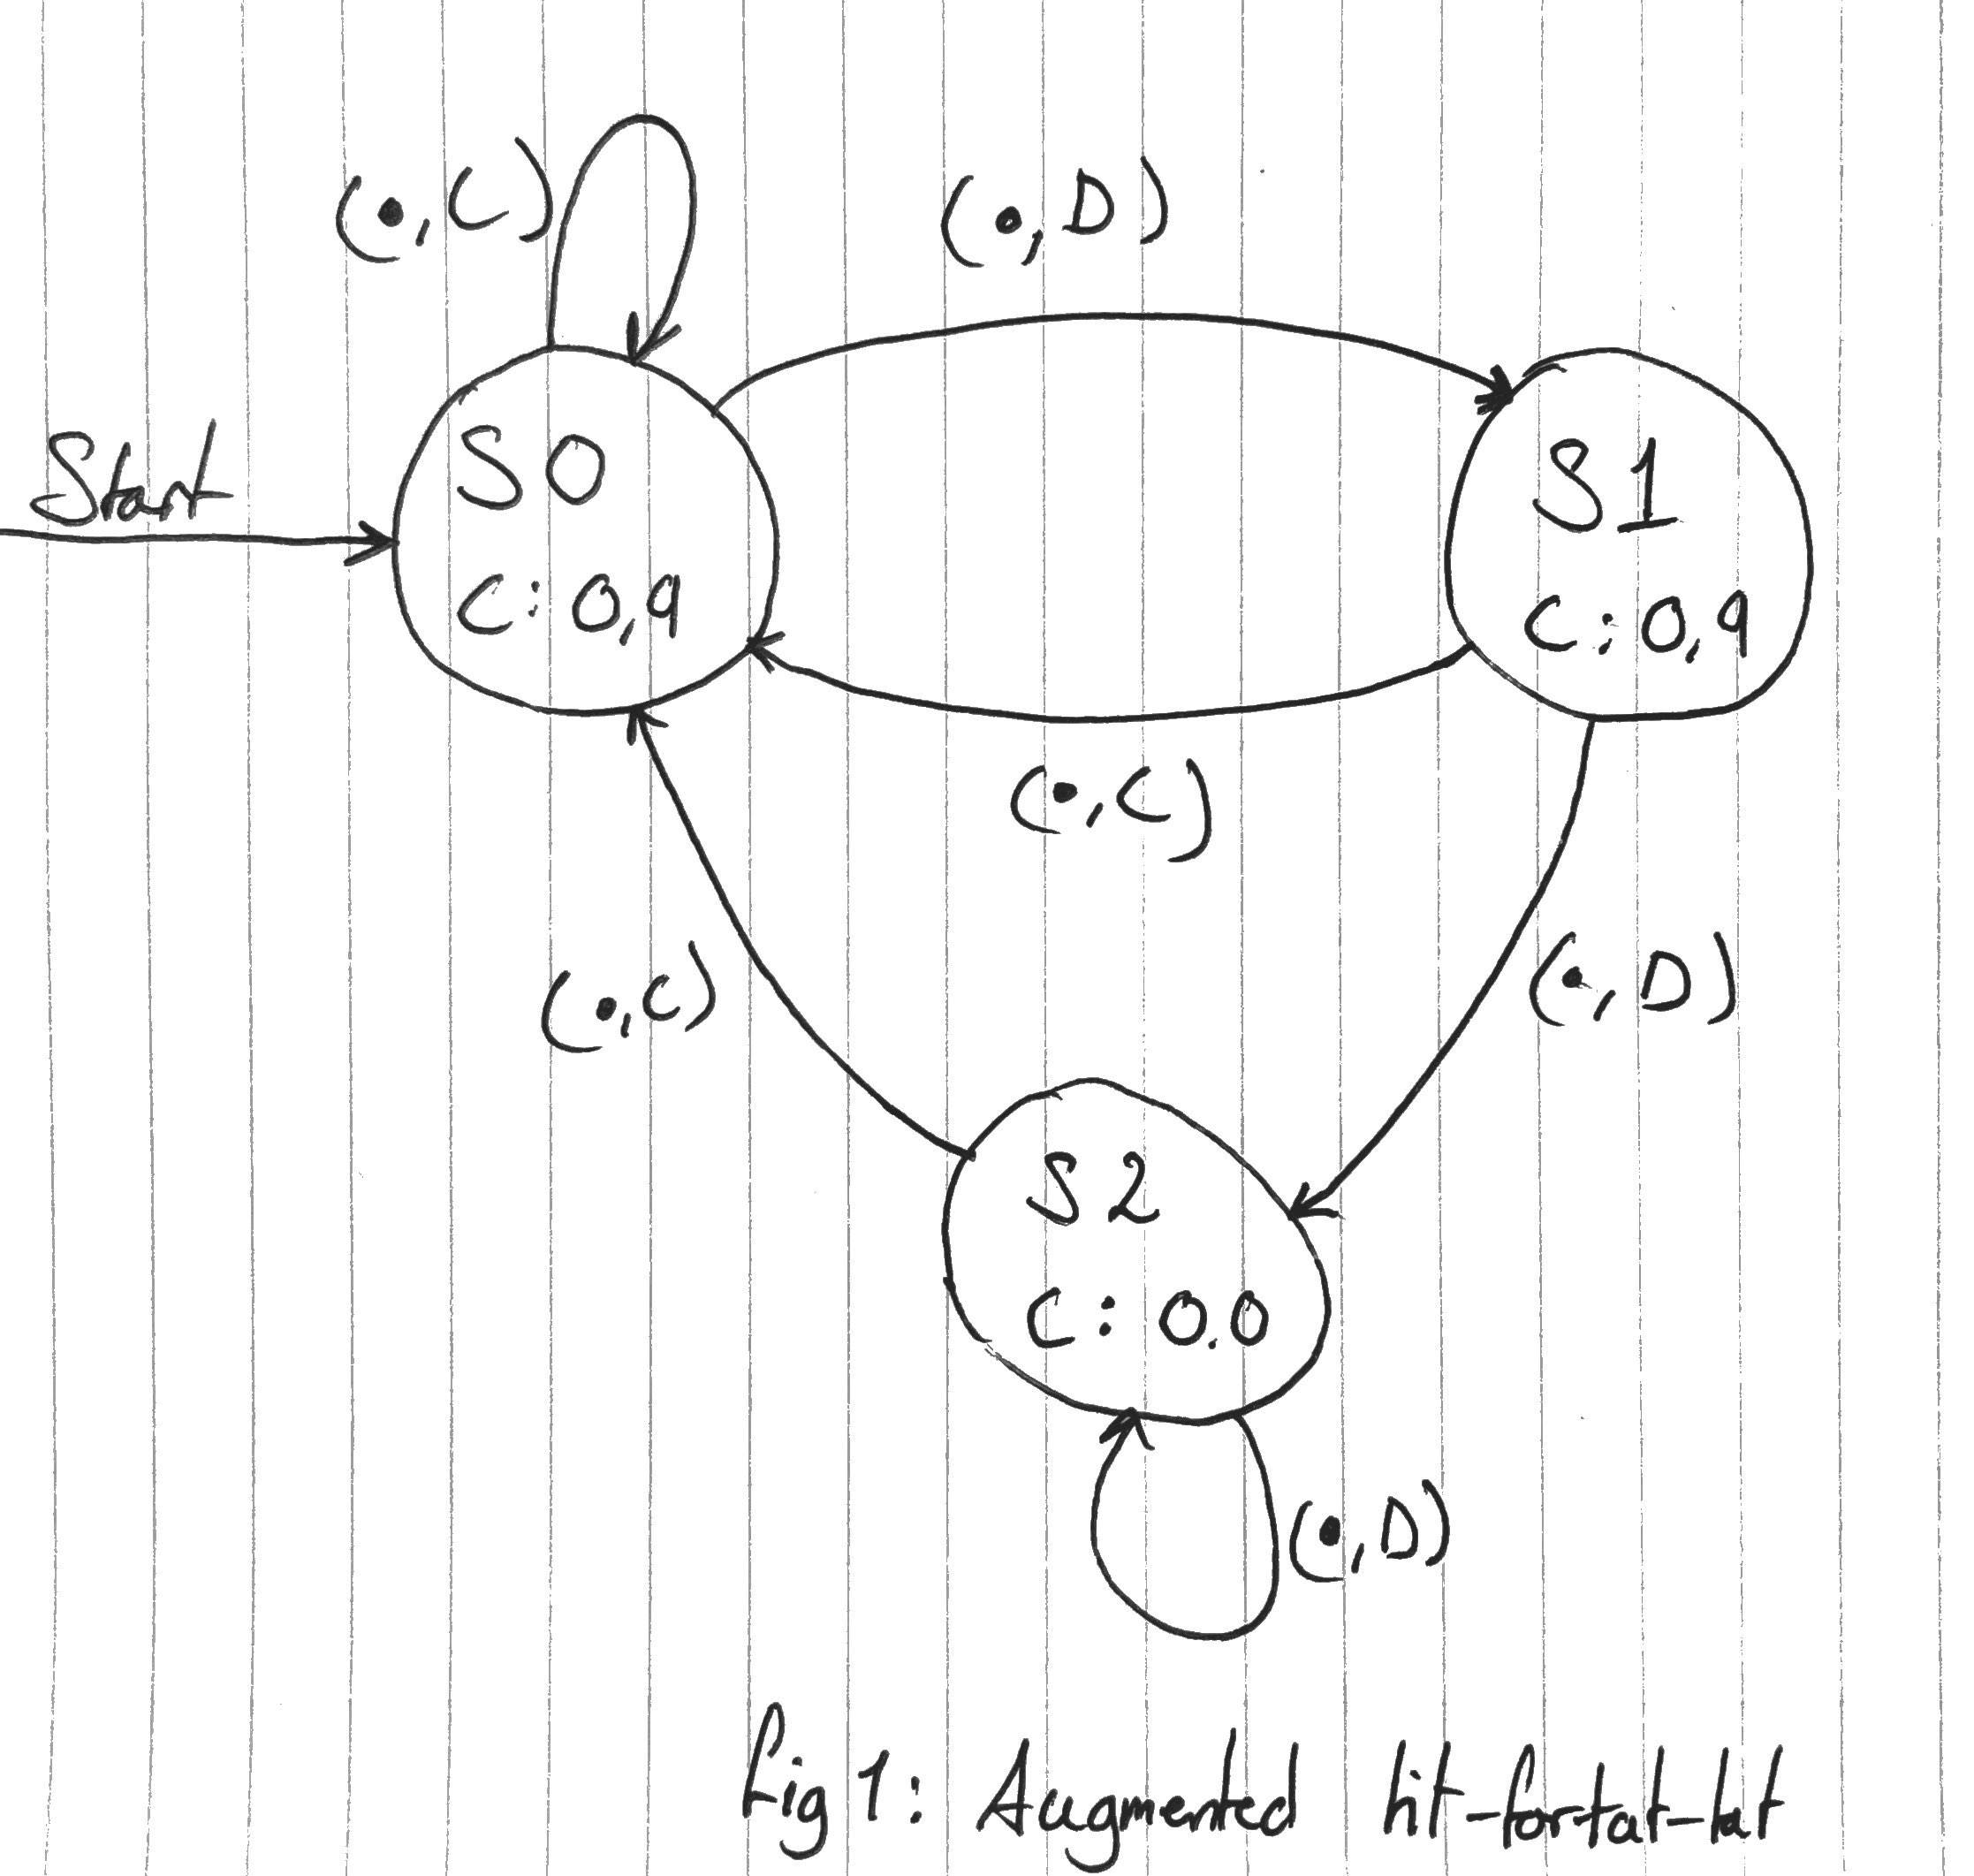 (•,C)
(•,D)
Start
S0
C:0,9
S1
C:0,9
(•,C)
(•,C)
(•,D)
S2
C:0.0
(•,D)
Fig 1: Augmented tit-for-tat-tat